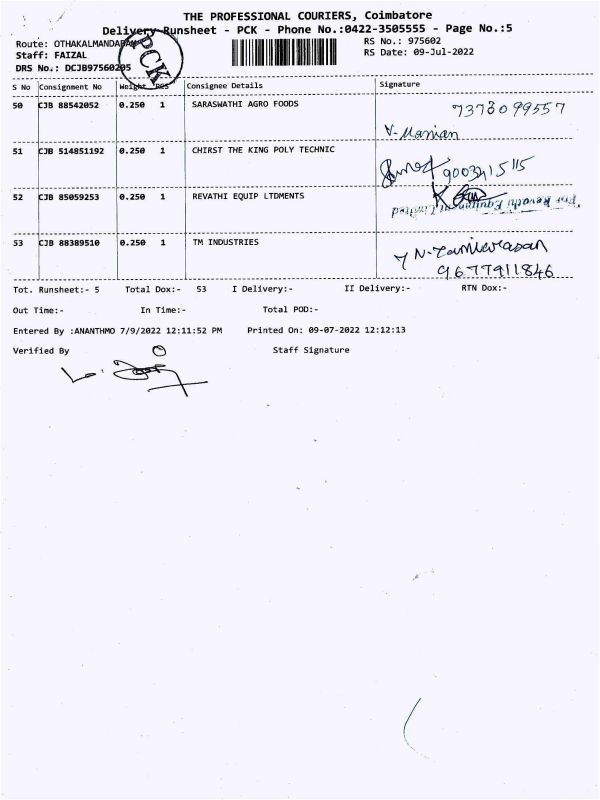 THE PROFESSIONAL COURIERS, Coimbatore
Delivery Runsheet - PCK - Phone No.:0422-3505555 - Page No.:5
Route: OTHAKALMANDABAM
RS No.: 975602
Staff: FAIZAL
RS Date: 09-Jul-2022
DRS No.: DCJB97560205
PCK
S No Consignment No Weight PCS Consignee Details Signature
50 CJB 88542052 0.250 1 SARASWATHI AGRO FOODS 7373099557
V. Manian
51 CJB 514851192 0.250 1 CHIRST THE KING POLY TECHNIC
52 CJB 85059253 0.250 1 REVATHI EQUIP LTDMENTS
For Revathi Equipment Limited
53 CJB 88389510 0.250 1 TM INDUSTRIES
9677911846
Tot. Runsheet:- 5 Total Dox:- 53 I Delivery:- II Delivery:- RTN Dox:-
Out Time:- In Time:- Total POD:-
Entered By :ANANTHMO 7/9/2022 12:11:52 PM Printed On: 09-07-2022 12:12:13
Verified By Staff Signature